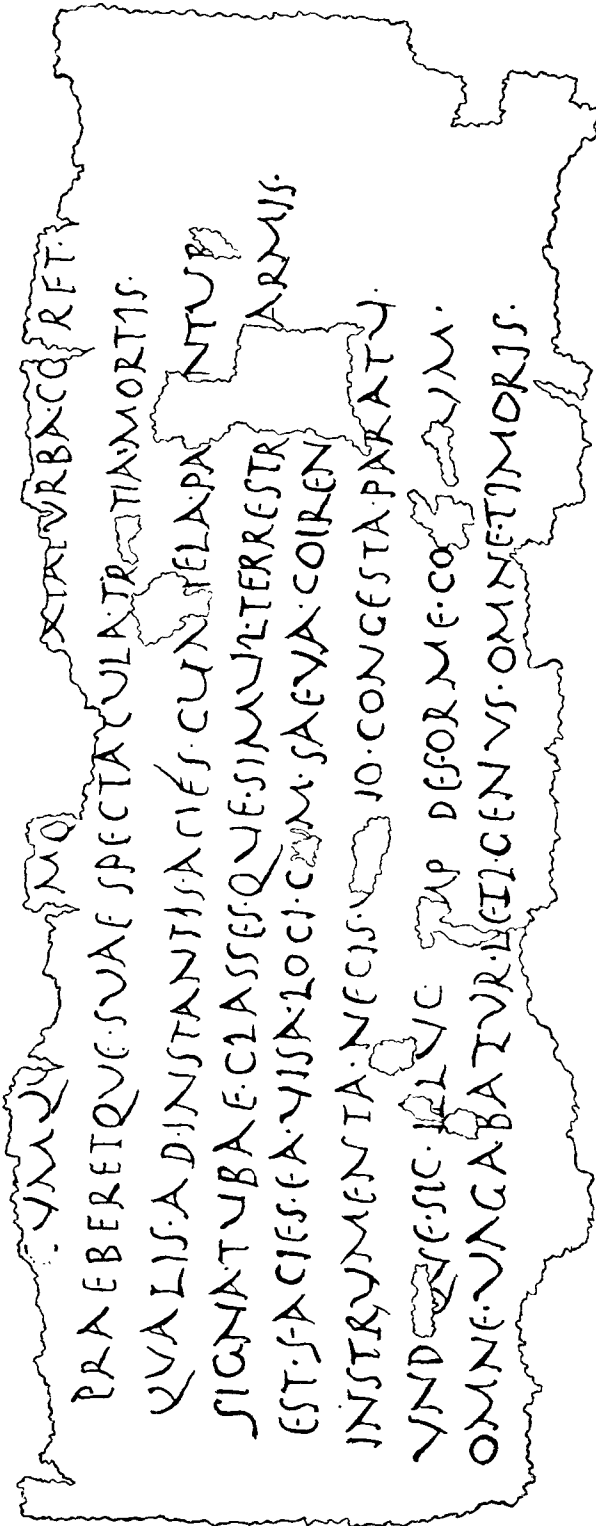 VMQV MQ XIATVRBA·CO RET·
PRAEBERETQVE·SVAE SPECTACVLA·TR TIA·MORTIS·
QVALIS·AD·INSTANTIS·ACIÉS·CVM TELA·PA NTUR
SIGNA·TUBAE·CLASSESQVE·SIMVL·TERRESTR ARMIS·
EST·FACIES·EA·VISA·LOCI·C M·SAEVA·COIREN
INSTRVMENTA·NECIS·V IO·CONGESTA·PARATV·
VND QVE·SIC·ILLVC AP DEFORME·CO VM·
OMNE·VAGABATVR·LETI·GENVS·OMNE·TIMORIS·